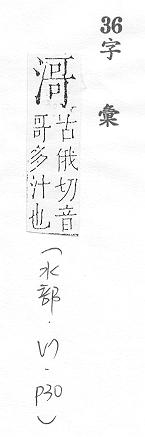 36
字彙
滒
苦俄切音
哥多汁也
(水部 · - p30)